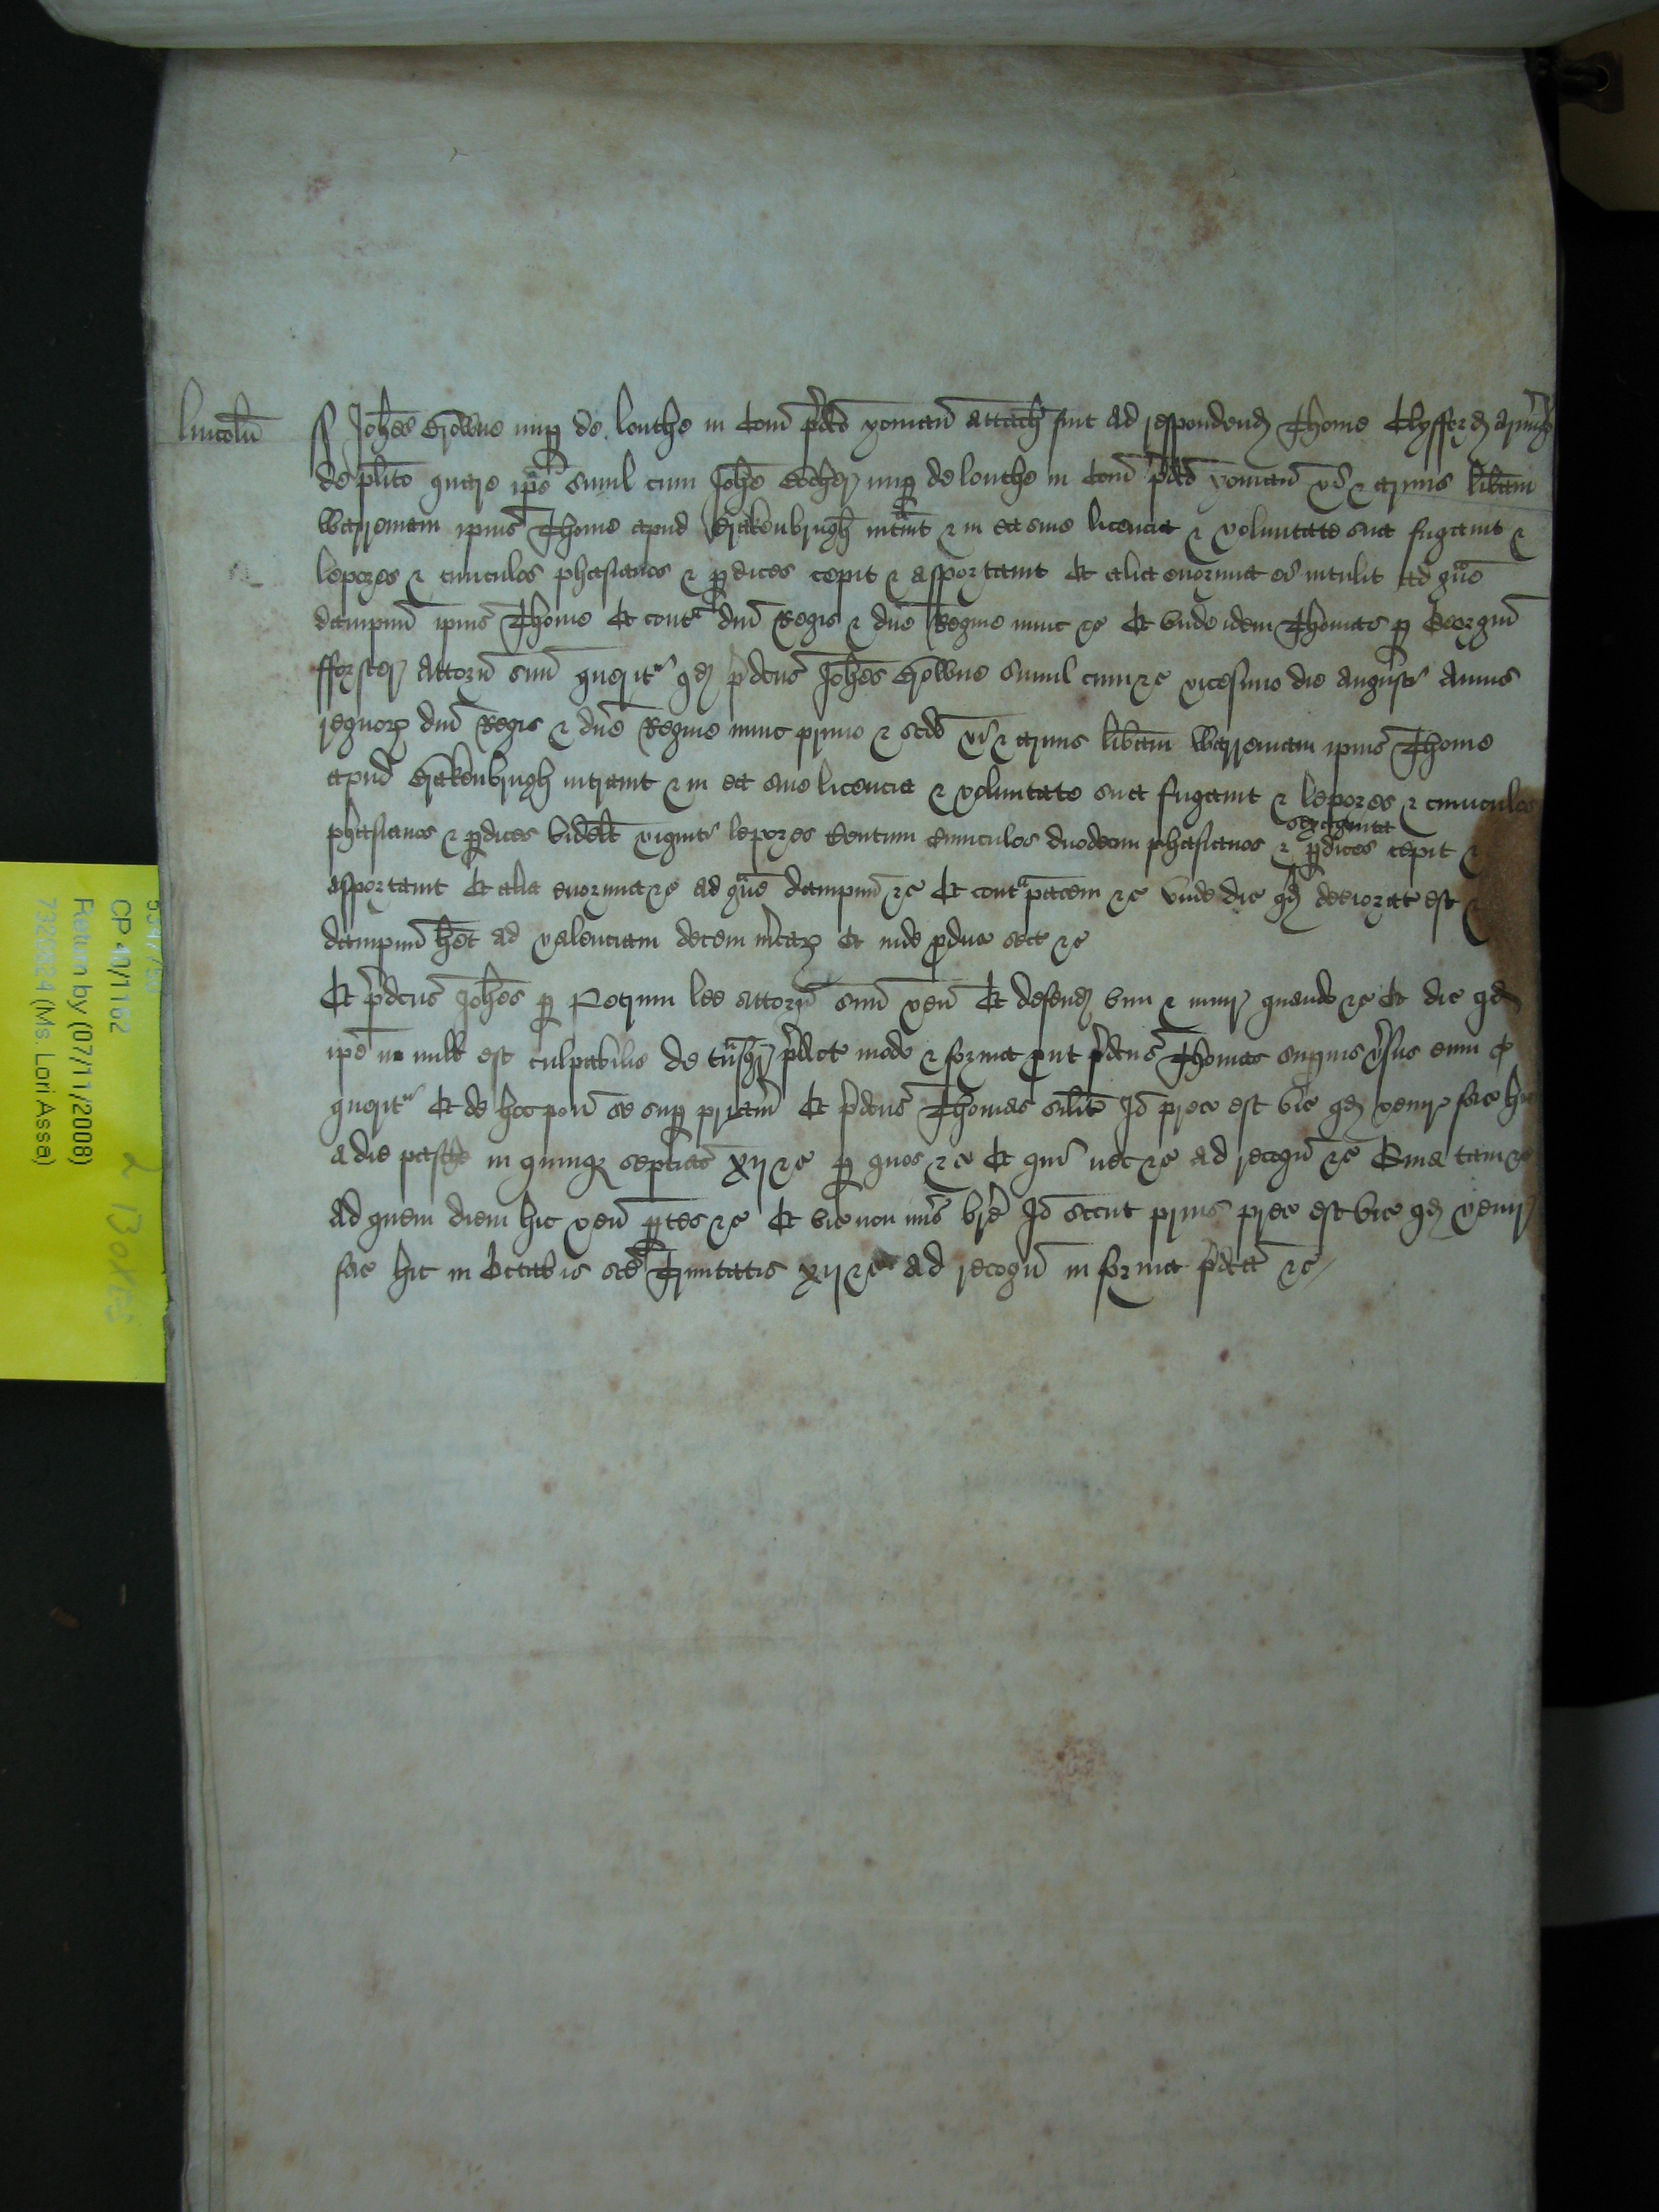 Lincoln̄ ss Joħes Browne nup̱ de Louthe in Com̄ p̄dc̄o yoman̄ attach̄ fuit ad respondend̄ Thome Clyfford armig̃o
de pl̄ito quare ip̄e simul cum Joħe nup̱ de Louthe in Com̄ p̄dc̄o yoman̄ vi & armis lib̄am
Warrennam ip̄ius Thome apud Brakenbrugh intrauit & in ea sine licencia & voluntate sua fugauit &
lepores & cuniculos phasianos & p̱dices cepit & asportauit Et alia enormia ei intulit ad g̃ue
dampnū ip̄ius Thome Et cont̃ pacem dn̄i Regis & dn̄e Regine nunc &c Et unde idem Thomas p̱ Georgiū
fforster Attorn̄ suū querit̃ qd̄ p̄dcūs Joħes Browne simul cum &c vicesimo die Augusti Annis
regnoꝝ dn̄i Regis & dn̄e Regine nunc primo & scd̄o vi & armis lib̄am Warrennam ip̄ius Thome
apud Brakenbrugh intrauit & in ea sine licencia & voluntate sua fugauit & lepores & cuniculos
phasianos & p̱dices videlt̄ viginti lepores Centum Cuniculos duodecim phasianos & sexaginta p̱dices cepit &
asportauit Et alia enormia &c ad g̃ue dampnū &c Et cont̃ pacem &c Unde dic̄ qd̄ deteriorat̄ est &
dampnū het̄ ad valenciam decem m̄carꝝ Et inde p̱duc̄ sect̄ &c
Et p̄dcūs Joħes p̱ Petrum Lee Attorn̄ suū ven̄ Et defend̄ vim & iniur̄ quando &c Et dic̄ qd̄
ip̄e in null̄ est culpabilis de t̃nsgr̄ p̄dict̄ modo & forma put̄ p̄dcūs Thomas supius v̄sus eum
querit̃ Et de hoc pon̄ se sup̱ pr̄iam Et p̄dcūs Thomas silit̄ Id̄o prec̄ est vic̄ qd̄ venir̄ fac̄ hic
a die pasche in quinqꝫ septias̄ xij &c p̱ quos &c Et qui nec &c ad recogn̄ &c Quia tam &c
Ad quem diem hic ven̄ p̱tes &c Et vic̄ non mis̄ br̄e Id̄o sicut prius prec̄ est vic̄ qd̄ venir̄
fac̄ hic in Octabis sc̄e Trinitatis xij &c Ad recogn̄ in forma p̄dc̄a &c
CP 40/1162
Return by (07/11/2008)
7325824 (Ms. Lori Assa)
2 Boxes